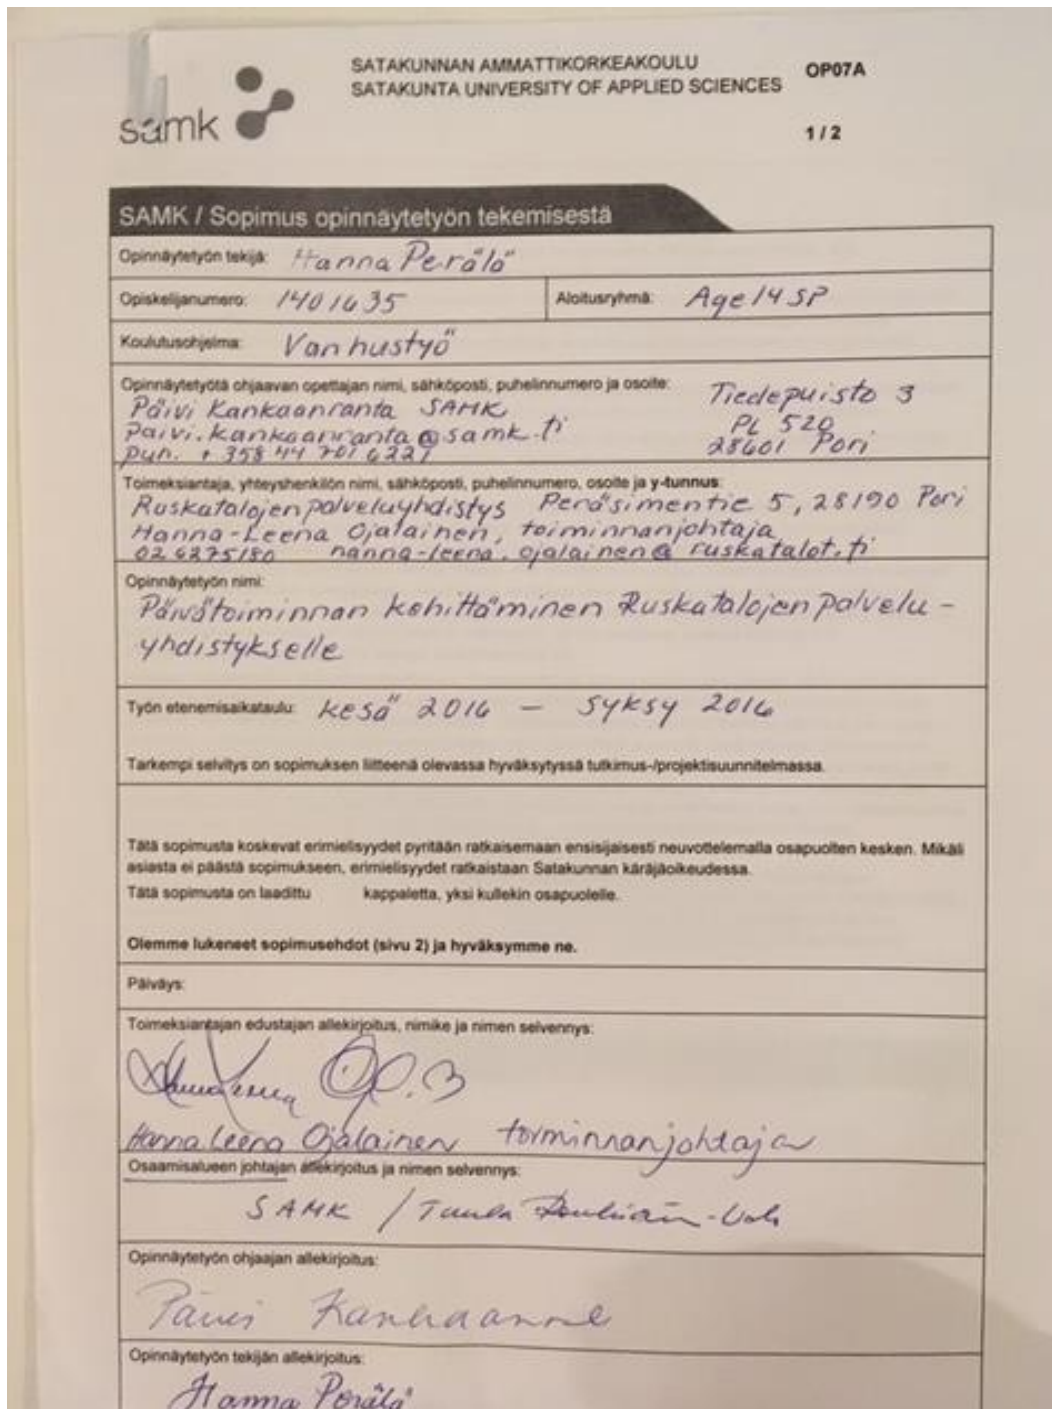 samk
SATAKUNNAN AMMATTIKORKEAKOULU
SATAKUNTA UNIVERSITY OF APPLIED SCIENCES
OP07A
1 / 2
SAMK / Sopimus opinnäytetyön tekemisestä
Opinnäytetyön tekijä: Hanna Perälä
Opiskelijanumero: 1401635
Aloitusryhmä: Age14SP
Koulutusohjelma: Vanhustyö
Opinnäytetyötä ohjaavan opettajan nimi, sähköposti, puhelinnumero ja osoite:
Päivi Kankaanranta SAMK
paivi.kankaanranta@samk.fi
puh. +358 44 701 6227
Tiedepuisto 3
PL 520
28601 Pori
Toimeksiantaja, yhteyshenkilön nimi, sähköposti, puhelinnumero, osoite ja y-tunnus:
Ruskatalojen palveluyhdistys Peräsimentie 5, 28190 Pori
Hanna-Leena Ojalainen, toiminnanjohtaja
02 6275180 hanna-leena.ojalainen@ruskatalot.fi
Opinnäytetyön nimi:
Päivätoiminnan kehittäminen Ruskatalojen palvelu-
yhdistykselle
Työn etenemisaikataulu: kesä 2016 – syksy 2016
Tarkempi selvitys on sopimuksen liitteenä olevassa hyväksytyssä tutkimus-/projektisuunnitelmassa.
Tätä sopimusta koskevat erimielisyydet pyritään ratkaisemaan ensisijaisesti neuvottelemalla osapuolten kesken. Mikäli
asiasta ei päästä sopimukseen, erimielisyydet ratkaistaan Satakunnan käräjäoikeudessa.
Tätä sopimusta on laadittu kappaletta, yksi kullekin osapuolelle.
Olemme lukeneet sopimusehdot (sivu 2) ja hyväksymme ne.
Päiväys:
Toimeksiantajan edustajan allekirjoitus, nimike ja nimen selvennys:
Hanna Leena Ojalainen toiminnanjohtaja
Osaamisalueen johtajan allekirjoitus ja nimen selvennys:
SAMK /
Opinnäytetyön ohjaajan allekirjoitus:
Päivi
Opinnäytetyön tekijän allekirjoitus:
Hanna Perälä